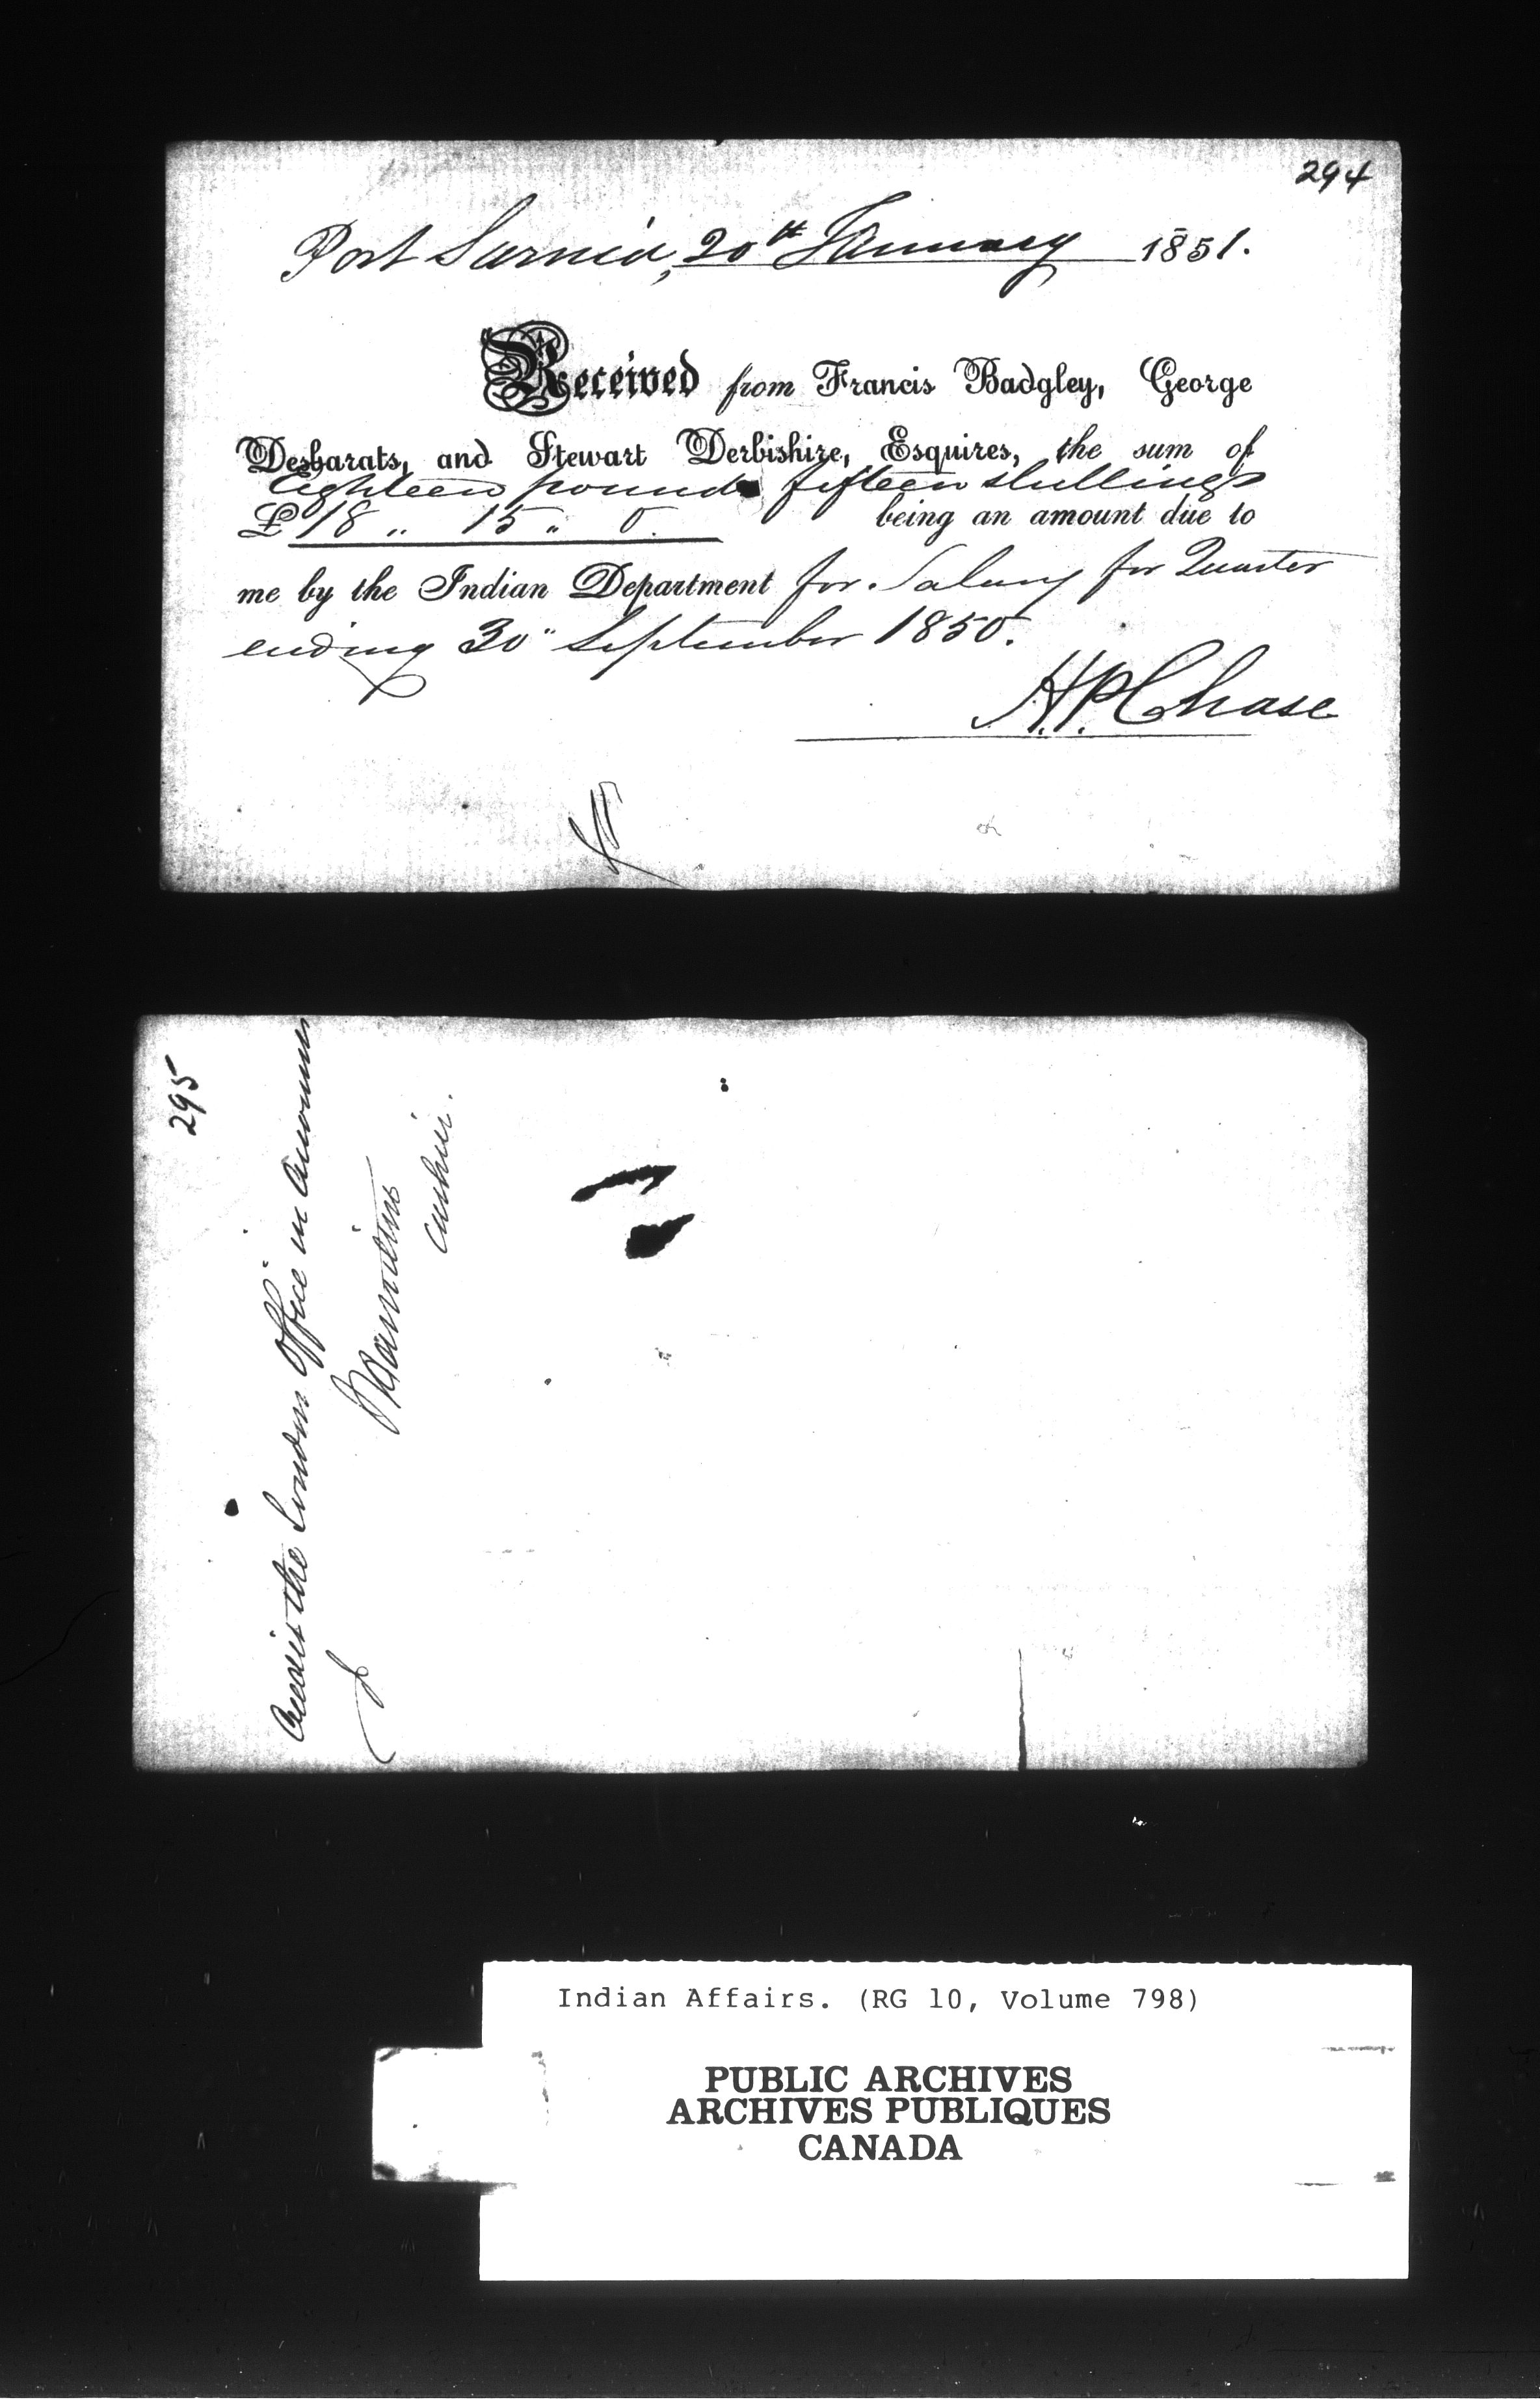 294
Port Sarnia, 20th January 1851.
Received from Francis Badgley, George
Desbarats, and Stewart Derbishire, Esquires, the sum of
Eighteen pounds fifteen shillings
£18 „ 15 „ 0. being an amount due to
me by the Indian Department for Salary for Quarter
ending 30" September 1850.
H.P. Chase
295
Credit the London Office in Account
Cashier.
Indian Affairs. (RG 10, Volume 798)
PUBLIC ARCHIVES
ARCHIVES PUBLIQUES
CANADA